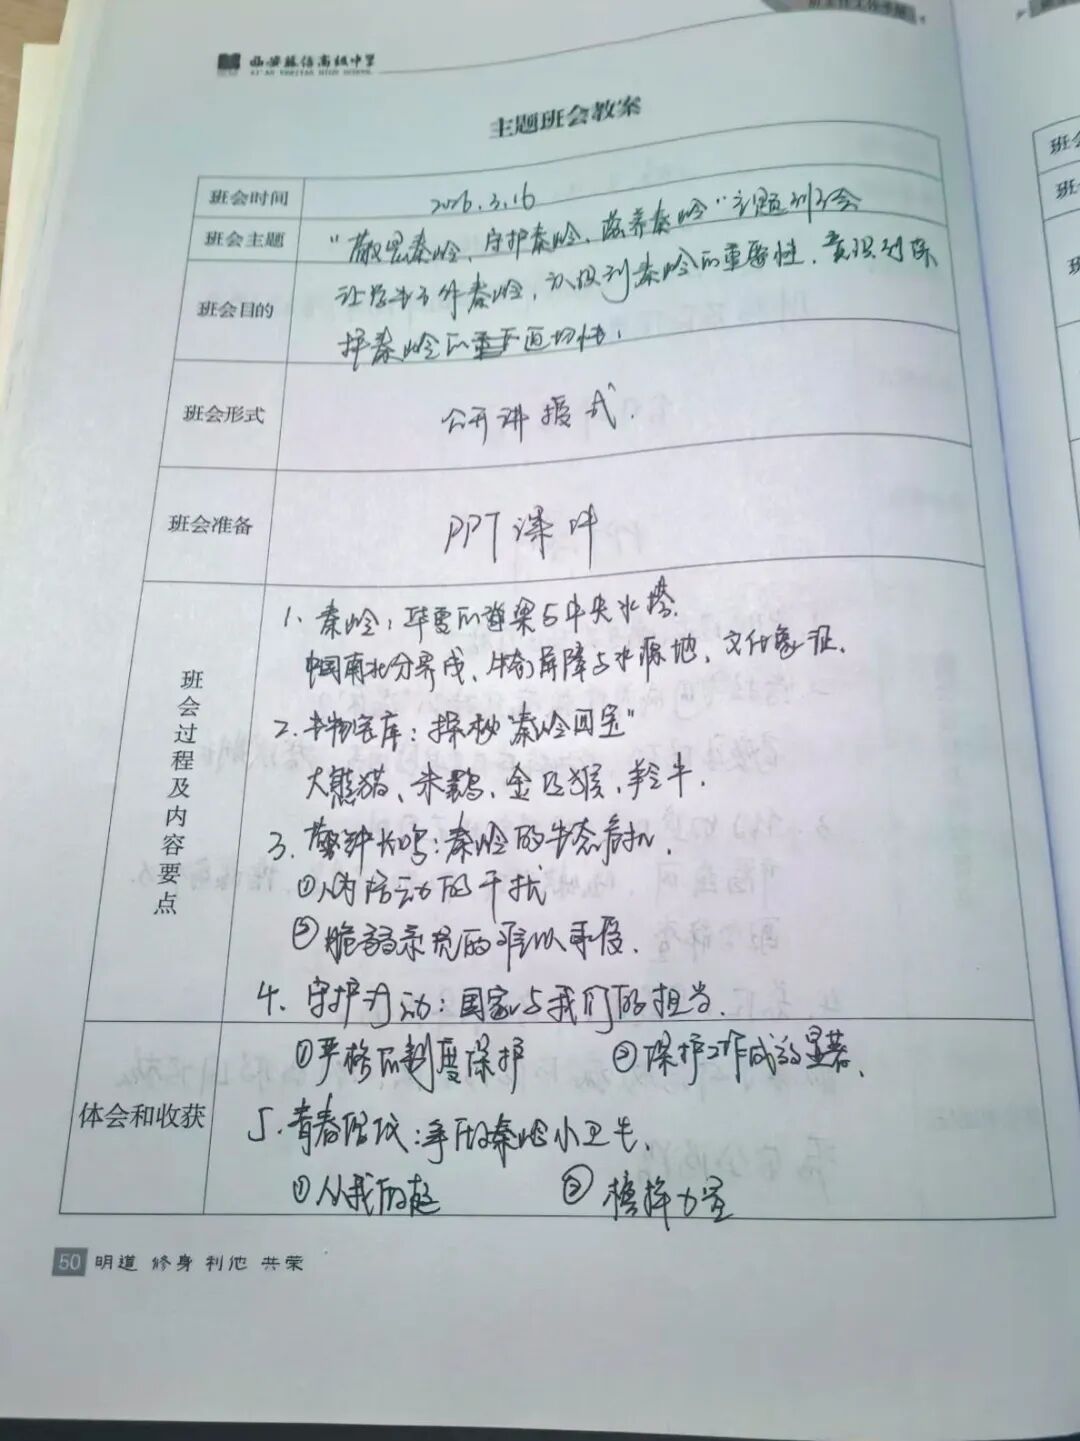 XI'AN HIGH SCHOOL
主题班会教案
班会时间
2026.3.16
班会主题
"敬畏秦岭、守护秦岭、滋养秦岭"主题班会
班会目的
让学生了解秦岭，认识到秦岭的重要性，意识到保
护秦岭的迫切性。
班会形式
公开讲授式.
班会准备
PPT课件
班会过程及内容要点
1、秦岭：华夏的脊梁与中央水塔.
中国南北分界线、生物屏障与水源地、文化象征.
2.生物宝库：探秘"秦岭四宝"
大熊猫、朱鹮、金丝猴、羚牛.
3、警钟长鸣：秦岭的生态危机.
①人为活动的干扰
②脆弱系统的难以承受.
4、守护行动：国家与我们的担当.
①严格的制度保护 ②保护工作成效显著.
体会和收获
5.青春倡议：争做秦岭小卫士.
①从我做起 ②榜样力量
50 明道 修身 利他 共荣
班
班
班